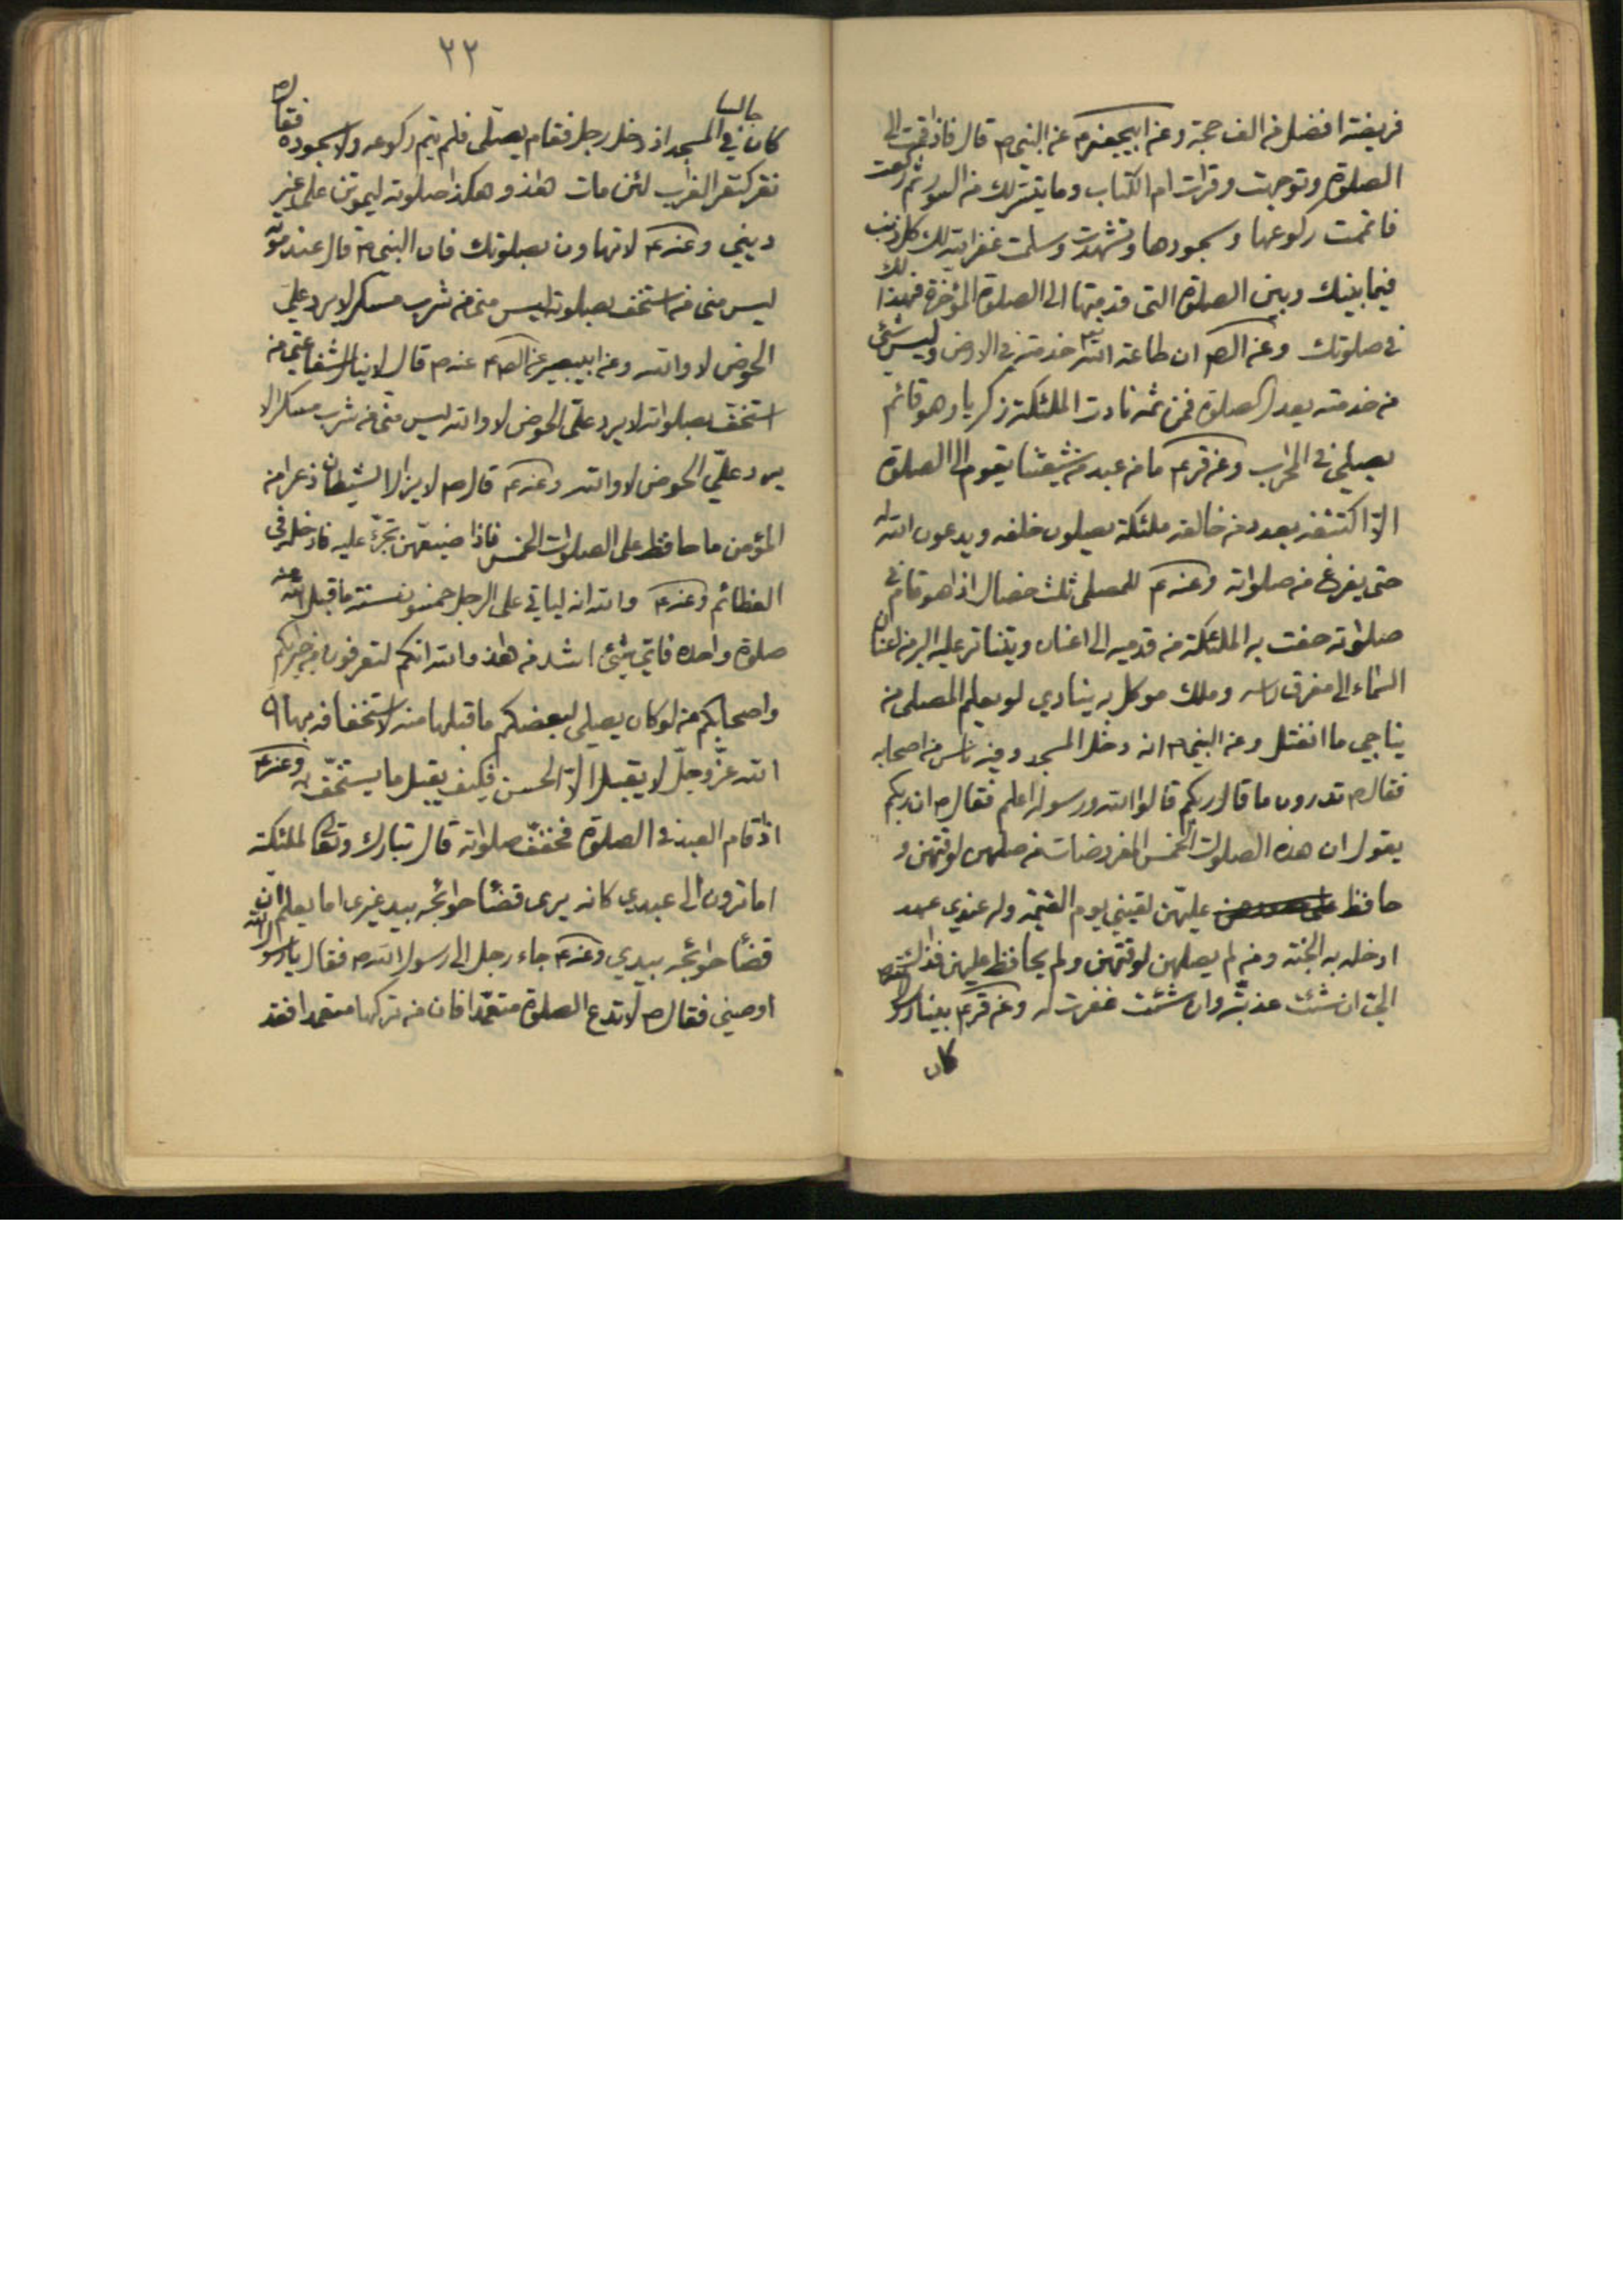 فريضة افضل من الف حجة وعن ابيجعفر ع عن النبي ص قال فاذا قمت الى
الصلوة وتوجهت وقرات ام الكتاب وما يتسر لك من السور ثم ركعت
فاتممت ركوعها وسجودها وتشهدت وسلمت غفر الله لك كل ذنب
فيما بينك وبين الصلوة التى قدمتها الى الصلوة المؤخرة فهذا لك
فى صلوتك وعن الص ان طاعة الله تع خدمته فى الارض وليس شئ
من خدمته يعدل الصلوة فمن ثمه نادت الملئكة زكريا وهو قائم
يصلى فى المحراب وعن قرع ما من عبد من شيعتنا يقوم الى الصلوة
الا اكتنفه بعدد من خالفه ملئكة يصلون خلفه ويدعون الله له
حتى يفرغ من صلواته وعنه ع للمصلى ثلث خصال اذا هو قام فى
صلوته حفت به الملئكة من قدميه الى اعنان ويتناثر عليه البر من اعنان
السماء الى مفرق راسه وملك موكل به ينادي لو يعلم المصلى من
يناجي ما انفتل وعن النبى ص انه دخل المسجد وفيه ناس من اصحابه
فقال ص تدرون ما قال ربكم قالوا الله ورسوله اعلم فقال ص ان ربكم
يقول ان هذه الصلوات الخمس المفروضات من صلهن لوقتهن و
حافظ عليهن لقيني يوم القيمة وله عندي عهد
ادخله به الجنة ومن لم يصلهن لوقتهن ولم يحافظ عليهن فذلك
الي ان شئت عذبته وان شئت غفرت له وعن قرع بينا رسول الله ص
كان
٢٢
كان جالسا في المسجد اذ دخل رجل فقام يصلى فلم يتم ركوعه ولا سجوده فقال ص
نقر كنقر الغراب لئن مات هذا وهكذا صلوته ليموتن على غير
ديني وعنه ع لا تهاون بصلوتك فان النبى ص قال عند موته
ليس منى من استخف بصلوته ليس منى من شرب مسكرا لا يرد علي
الحوض لا والله وعن ابيبصير عن الص ع عنه ص قال لا ينال شفاعتى من
استخف بصلواته لا يرد علي الحوض لا والله ليس منى من شرب مسكرا لا
يرد علي الحوض لا والله وعنه ع قال ص لا يزال الشيطان ذعرا من
المؤمن ما حافظ على الصلوات الخمس فاذا ضيعهن تجرئ عليه فادخله فى
العظائم وعنه ع والله انه لياتي على الرجل خمسون سنة ما قبل الله عنه
صلوة واحدة فاي شئ اشد من هذا والله انكم لتعرفون من جيرانكم
واصحابكم من لو كان يصلي لبعضكم ما قبلها منه لاستخفافه بها ان
الله عز وجل لا يقبل الا الحسن فكيف يقبل ما يستخف به وعنه ع
اذا قام العبد فى الصلوة فخفف صلواته قال تبارك وتعالى لملئكته
اما ترون الى عبدي كانه يرى قضأ حوائجه بيد غيرى اما يعلم ان
قضأ حوائجه بيدي وعنه ع جاء رجل الى رسول الله ص فقال يا رسول الله
اوصني فقال ص لا تدع الصلوة متعمدا فان من تركها متعمدا فقد